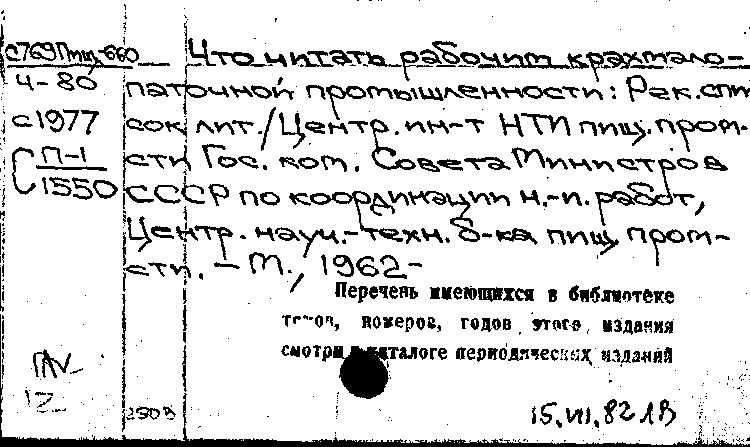 с769Пищ-660
Что читать рабочим крахмало-
Ч-80
паточной промышленности: Рек. спи
с1977
сок лит./Центр. ин-т НТИ пищ. пром-
П-1
1550
сти Гос. ком. Совета Министров
СССР по координации н.-и. работ,
Центр. науч.-техн. б-ка пищ. пром-
сти. – М., 1962-
Перечень имеющихся в библиотеке
томов, номеров, годов этого издания
смотри в каталоге периодических изданий
12
250В
15.VII.82 ЛВ